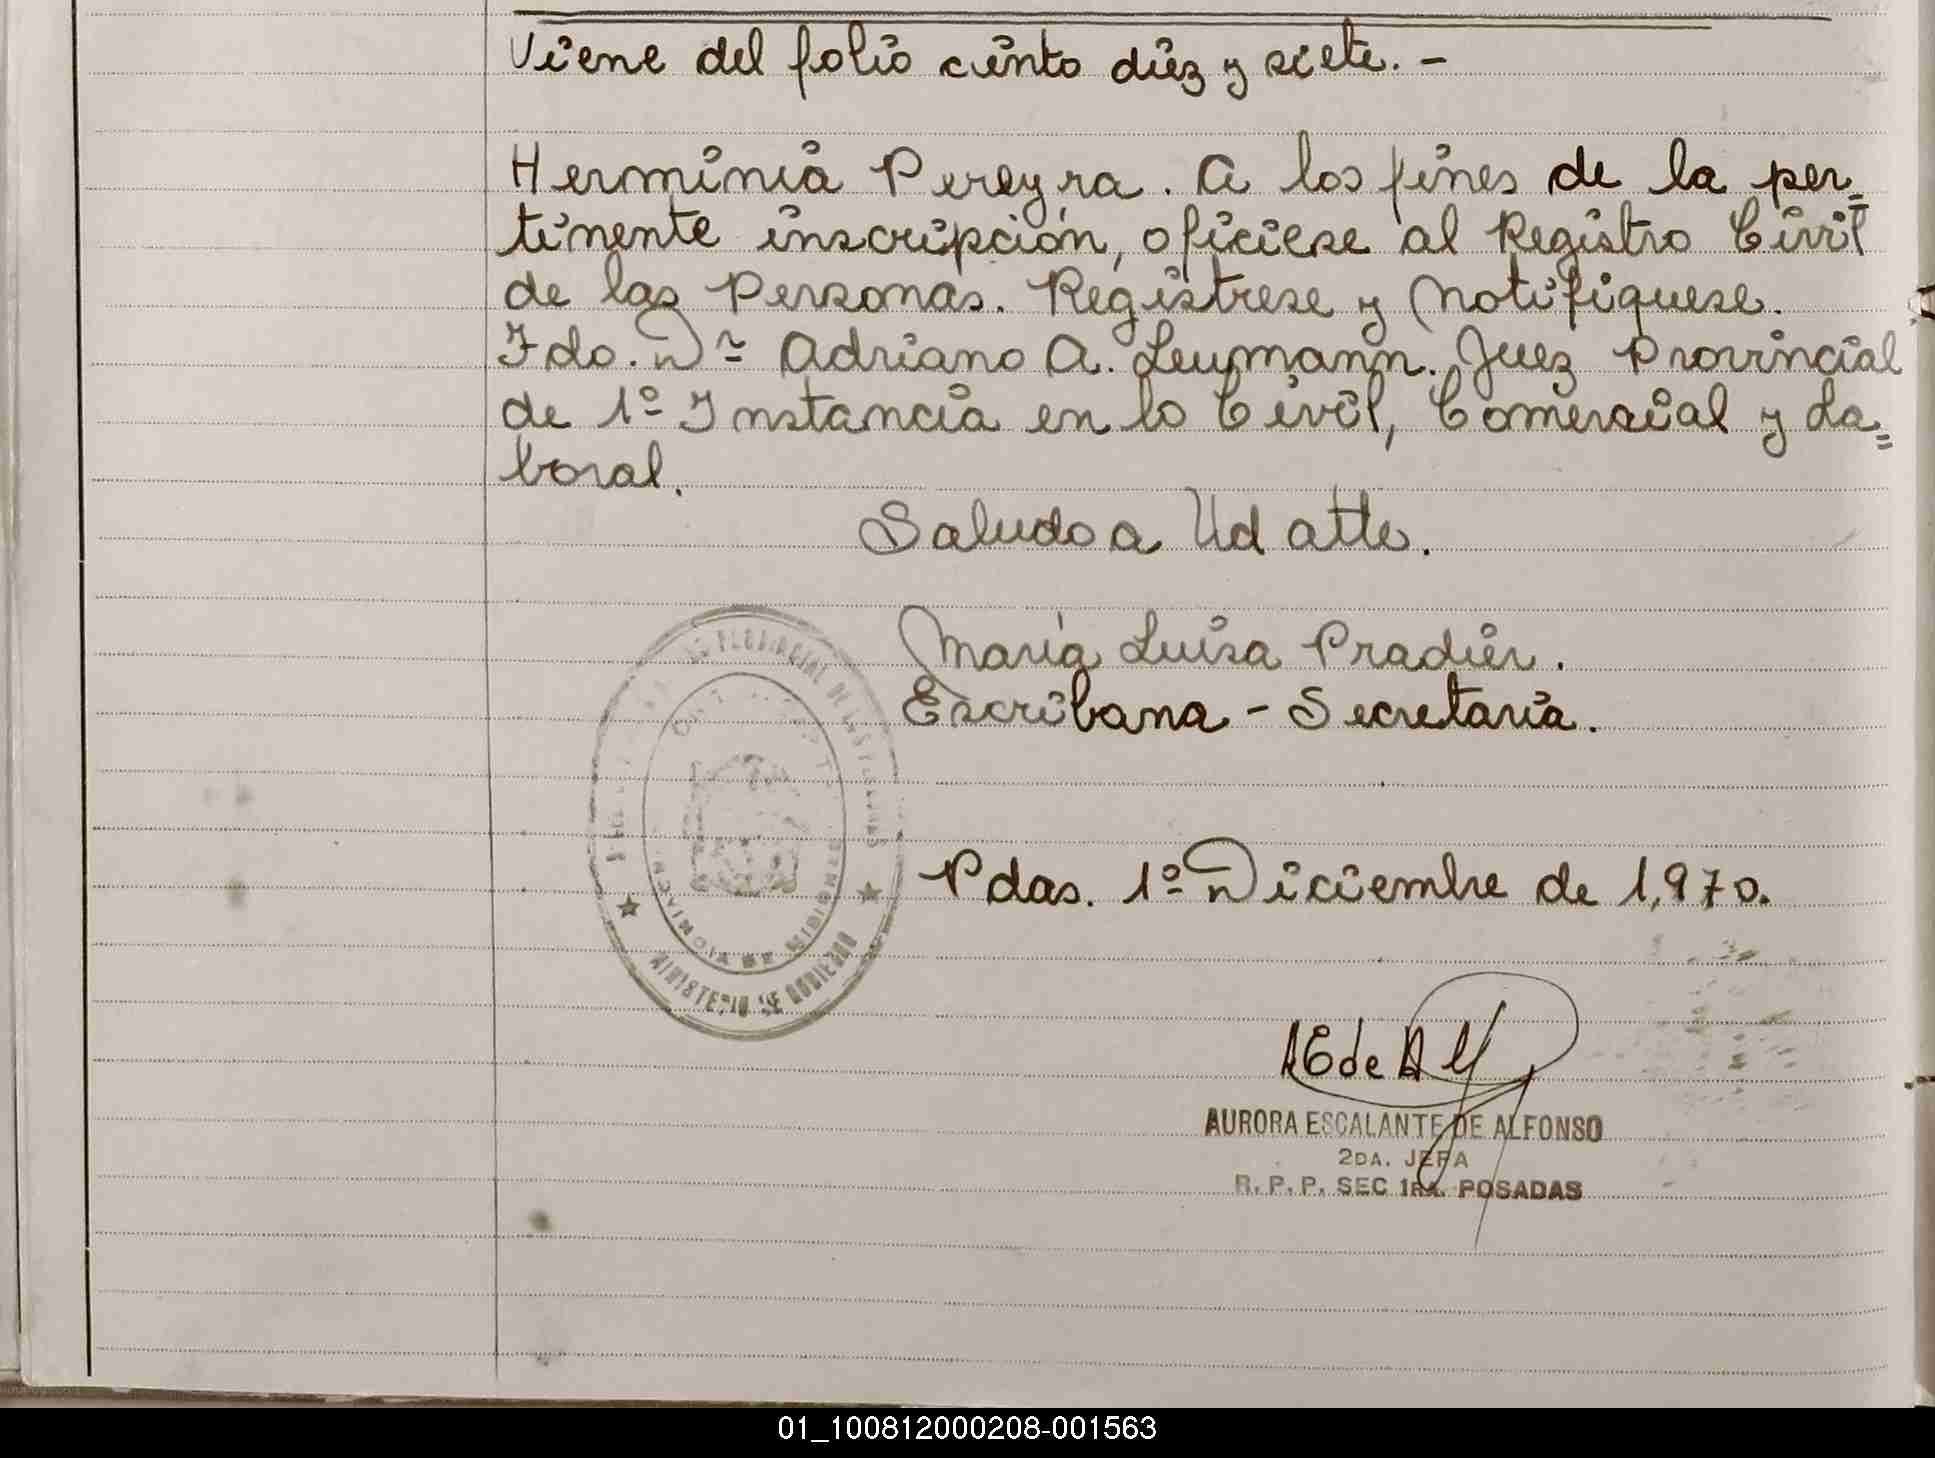 Viene del folio ciento diez y siete. -
Herminia Pereyra. A los fines de la per=
tinente inscripción, oficiese al Registro Civil
de las Personas. Registrese y Notifiquese.
Fdo. Dr Adriano A. Leumann. Juez Provincial
de 1º Instancia en lo Civil, Comercial y La=
boral.
Saludo a Ud atte.
María Luisa Pradier.
Escribana - Secretaria.
PROVINCIAL DE LAS PERSONAS
MINISTERIO DE GOBIERNO
PROVINCIA DE MISIONES
Pdas. 1º Diciembre de 1,970.
AE de Alf
AURORA ESCALANTE DE ALFONSO
2DA. JEFA
R. P. P. SEC 1RA. POSADAS
01_100812000208-001563